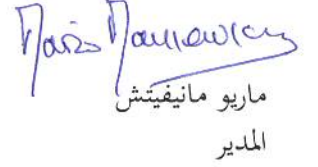 ماريو مانيفيتش
المدير